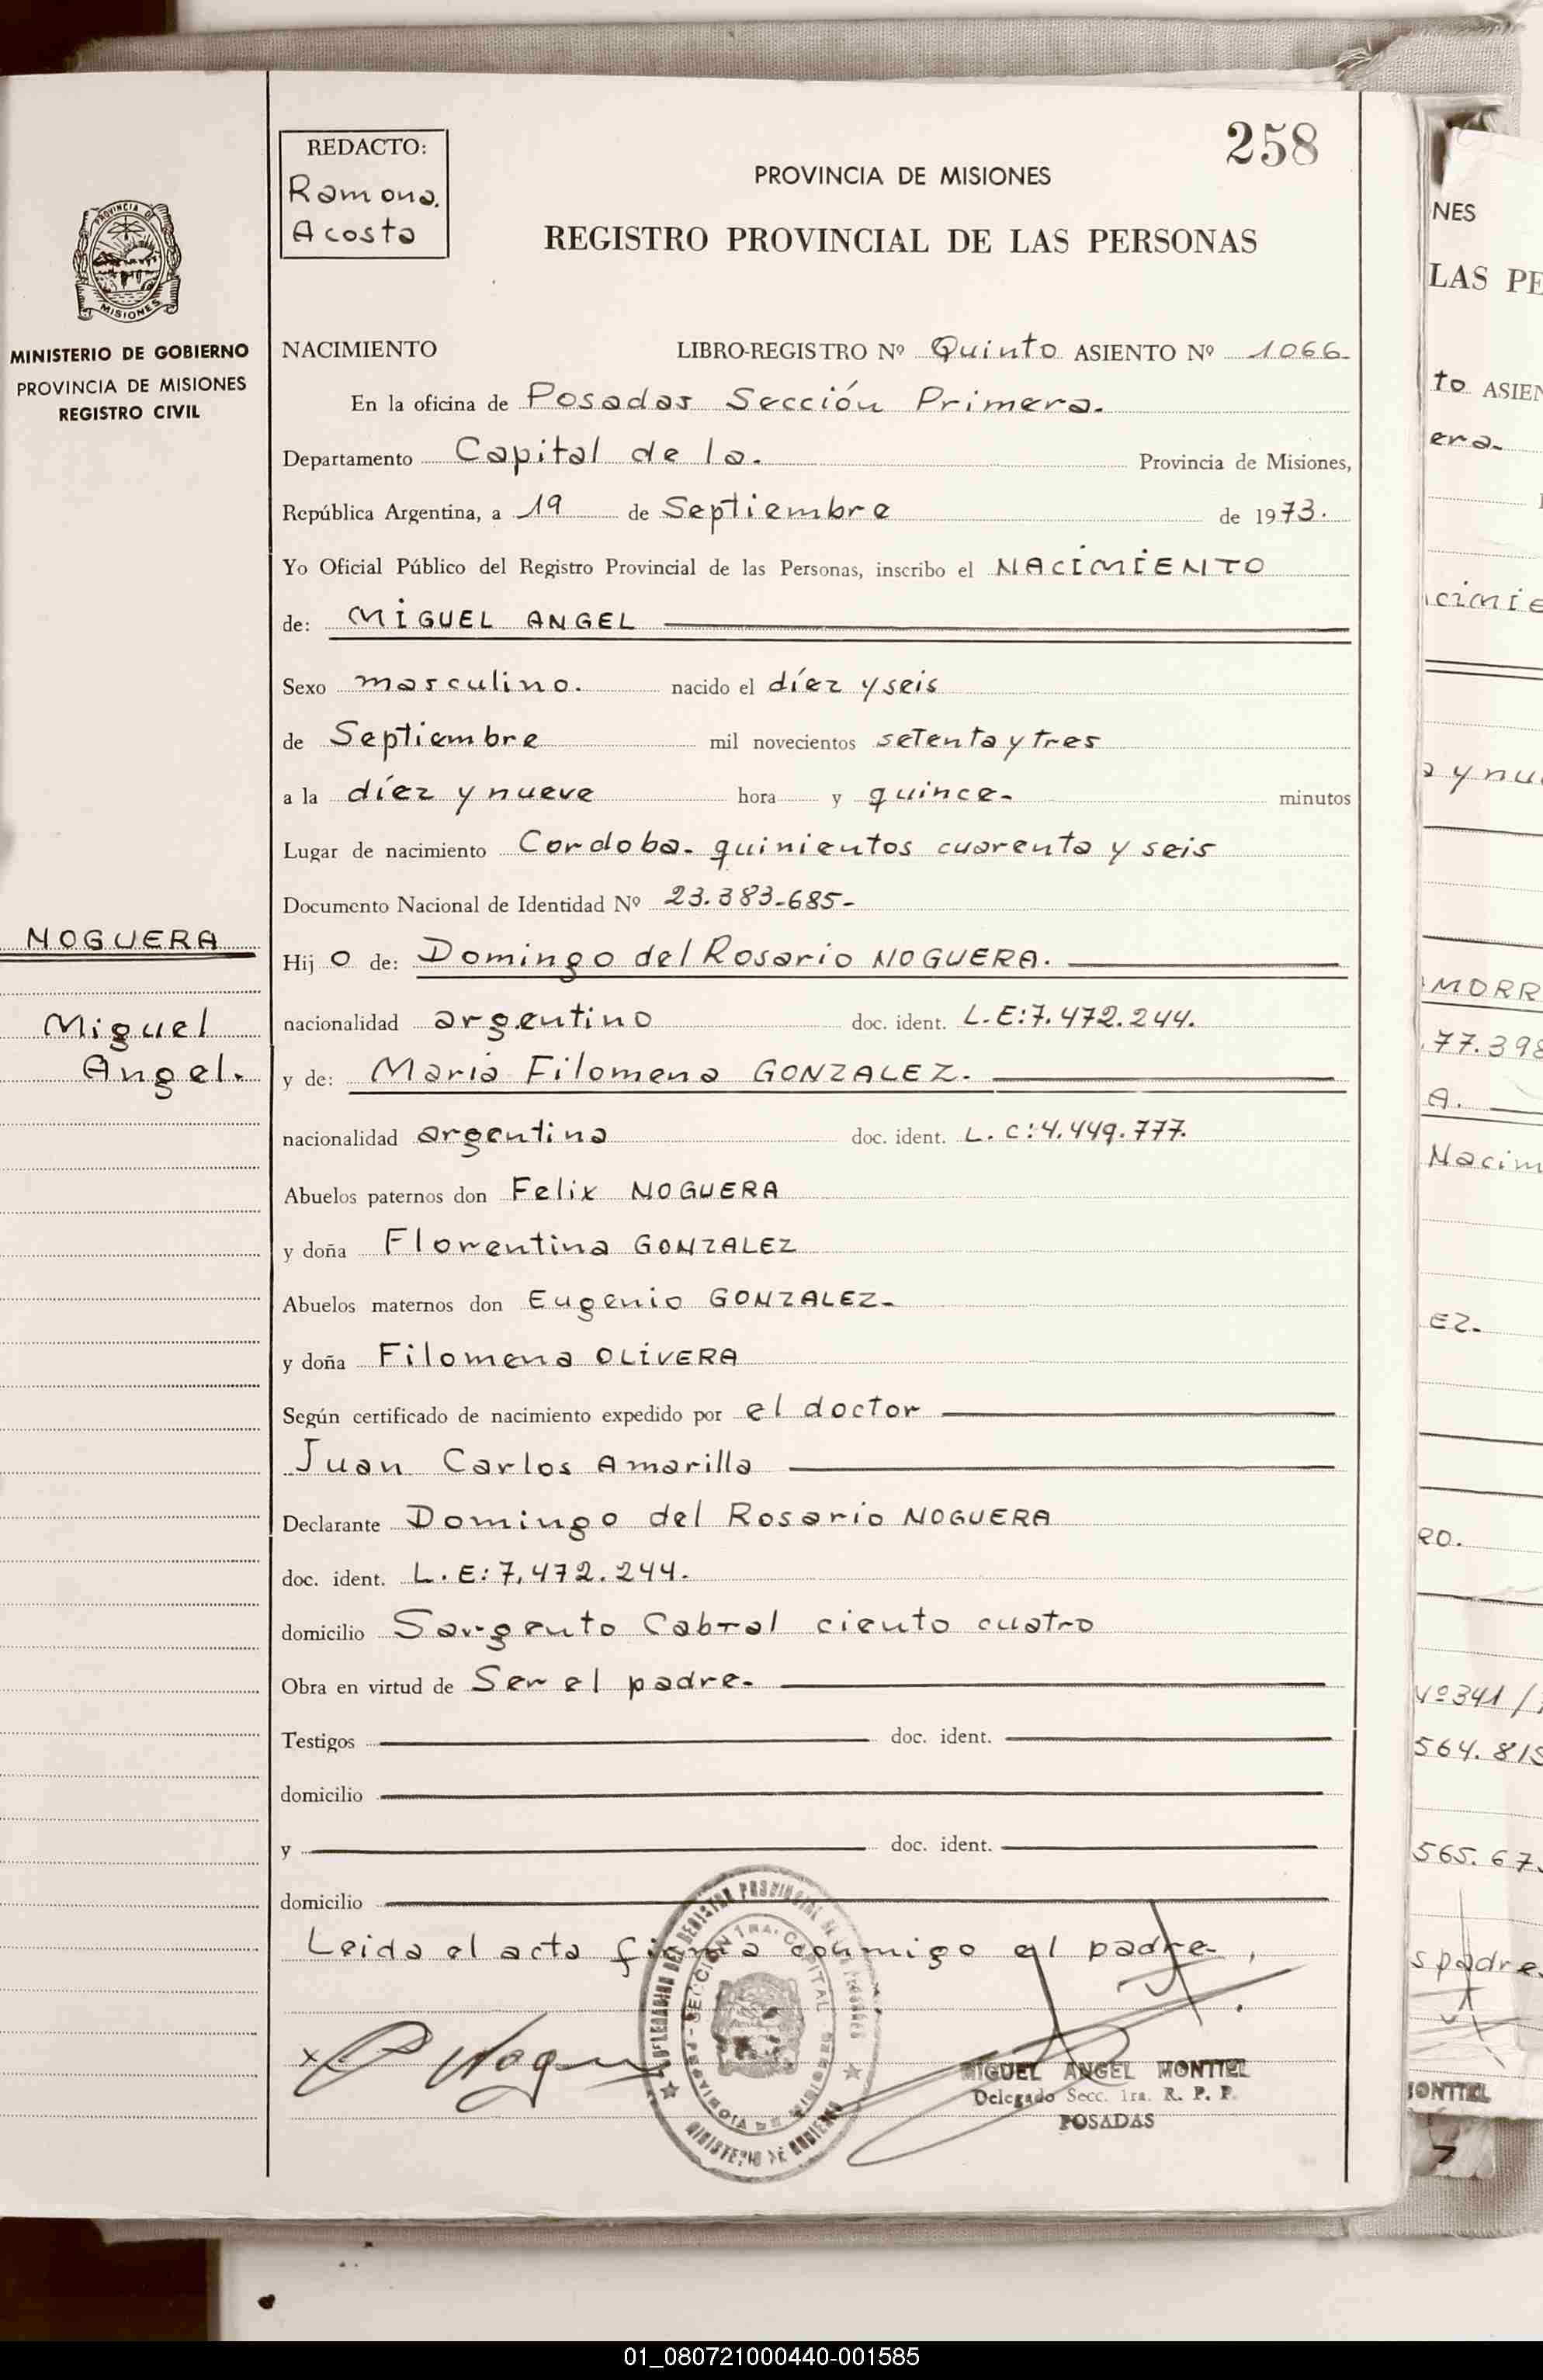 258
REDACTO:
Ramona.
Acosta
PROVINCIA DE MISIONES
REGISTRO PROVINCIAL DE LAS PERSONAS
PROVINCIA DE
MISIONES
MINISTERIO DE GOBIERNO
PROVINCIA DE MISIONES
REGISTRO CIVIL
NACIMIENTO LIBRO-REGISTRO Nº Quinto ASIENTO Nº 1066
En la oficina de Posadas Sección Primera.
Departamento Capital de la. Provincia de Misiones,
República Argentina, a 19 de Septiembre de 1973.
Yo Oficial Público del Registro Provincial de las Personas, inscribo el NACIMIENTO
de: MIGUEL ANGEL
Sexo masculino. nacido el díez y seis
de Septiembre mil novecientos setenta y tres
a la díez y nueve hora y quince- minutos
Lugar de nacimiento Cordoba- quinientos cuarenta y seis
Documento Nacional de Identidad Nº 23.383-685-
NOGUERA
Miguel
Angel.
Hijo de: Domingo del Rosario NOGUERA.
nacionalidad argentino doc. ident. L.E:7.472.244.
y de: Maria Filomena GONZALEZ.
nacionalidad argentina doc. ident. L.C:4.449.777.
Abuelos paternos don Felix NOGUERA
y doña Florentina GONZALEZ
Abuelos maternos don Eugenio GONZALEZ-
y doña Filomena OLIVERA
Según certificado de nacimiento expedido por el doctor
Juan Carlos Amarilla
Declarante Domingo del Rosario NOGUERA
doc. ident. L.E:7.472.244.
domicilio Sargento Cabral ciento cuatro
Obra en virtud de Ser el padre.
Testigos doc. ident.
domicilio
y doc. ident.
domicilio
Leida el acta firma conmigo el padre,
SECCION 1RA. CAPITAL
PROVINCIA DE MISIONES
MINISTERIO DE GOBIERNO
MIGUEL ANGEL MONTIEL
Delegado Secc. 1ra. R. P. P.
POSADAS
NES
LAS PE
to ASIEN
era-
cimie
a y nu
MORR
77.398
A.
Nacim
EZ-
RO.
Nº341/
564.815
565.67
s padre
MONTIEL
01_080721000440-001585